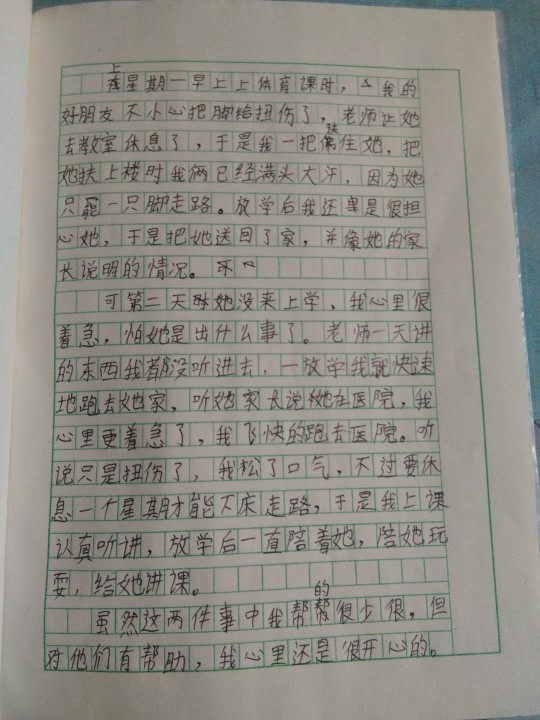 上星期一早上上体育课时，我的
好朋友不小心把脚给扭伤了，老师让她
去教室休息了，于是我一把扶住她，把
她扶上楼时我俩已经满头大汗，因为她
只能一只脚走路。放学后我还是很担
心她，于是把她送回了家，并像她的家
长说明的情况。
可第二天她没来上学，我心里很
着急，怕她是出什么事了。老师一天讲
的东西我都没听进去，一放学我就快速
地跑去她家，听她家长说她在医院，我
心里更着急了，我飞快的跑去医院。听
说只是扭伤了，我松了口气，不过要休
息一个星期才能下床走路，于是我上课
认真听讲，放学后一直陪着她，陪她玩
耍，给她讲课。
虽然这两件事中我帮的很少很，但
对他们有帮助，我心里还是很开心的。